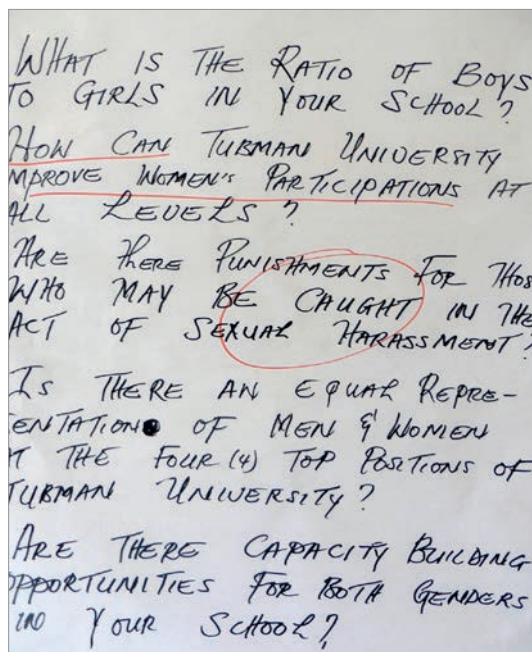 WHAT IS THE RATIO OF BOYS
TO GIRLS IN YOUR SCHOOL?
HOW CAN TUBMAN UNIVERSITY
MPROVE WOMEN'S PARTICIPATIONS AT
ALL LEVELS?
ARE THERE PUNISHMENTS FOR THOS
WHO MAY BE CAUGHT IN THE
ACT OF SEXUAL HARASSMENT?
IS THERE AN EQUAL REPRE-
ENTATION OF MEN & WOMEN
T THE FOUR (4) TOP POSITIONS OF
TUBMAN UNIVERSITY?
ARE THERE CAPACITY BUILDING
OPPORTUNITIES FOR BOTH GENDERS
IN YOUR SCHOOL?